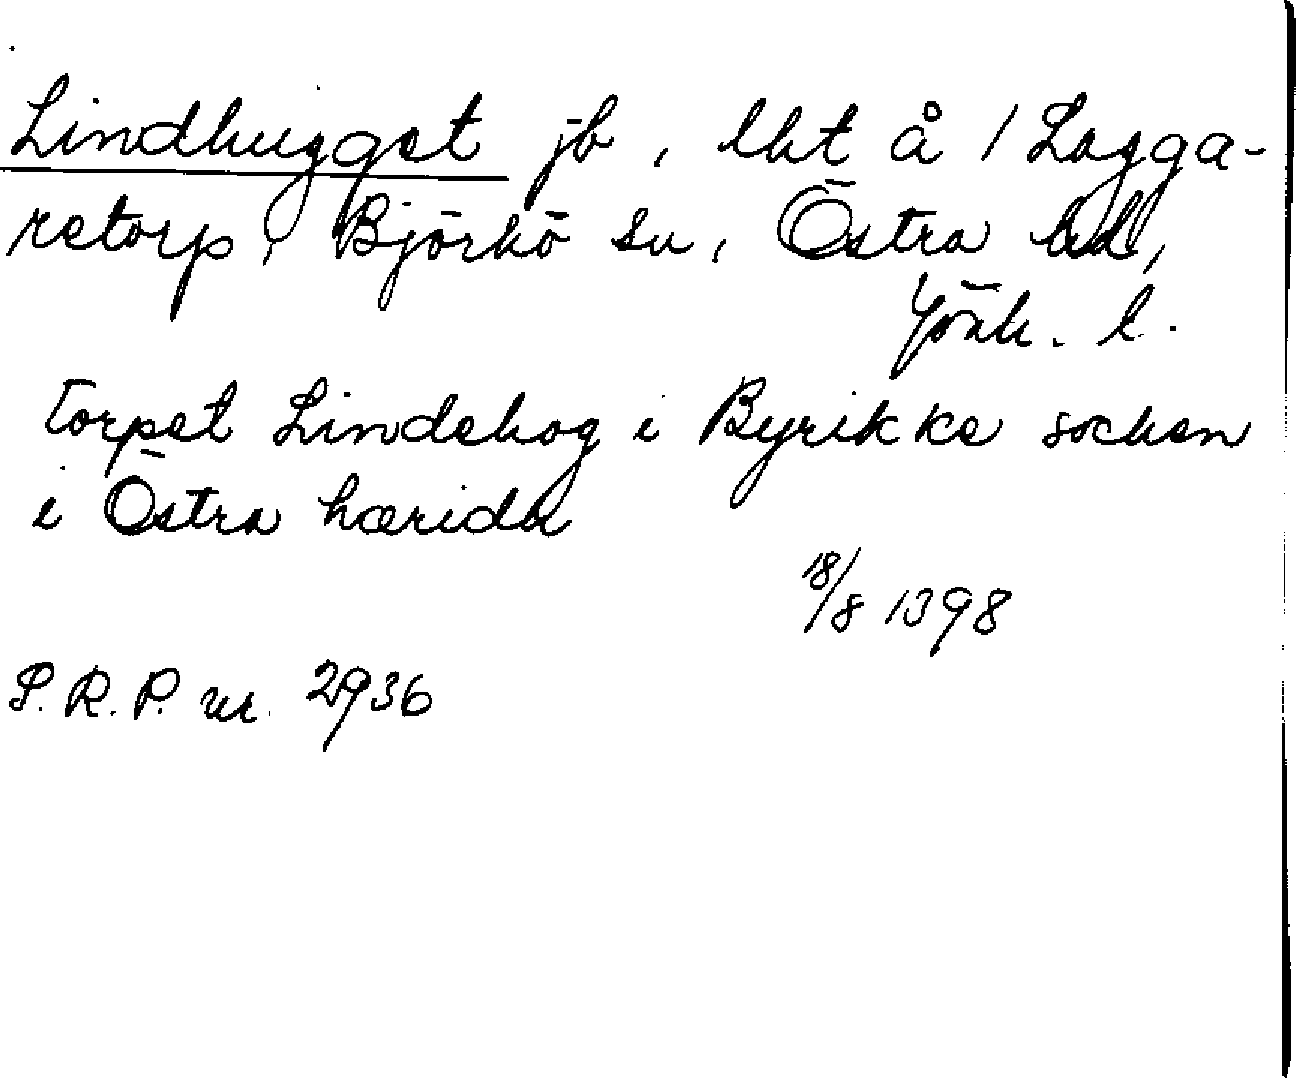 Lindhugget jb, lht å 1 Lagga-
retorp, Björkö sn, Östra hd,
Jönk. l.
torpet Lindehog i Byrikke socken
i Östra hæridh
18/8 1398
S.R.P. nr. 2936